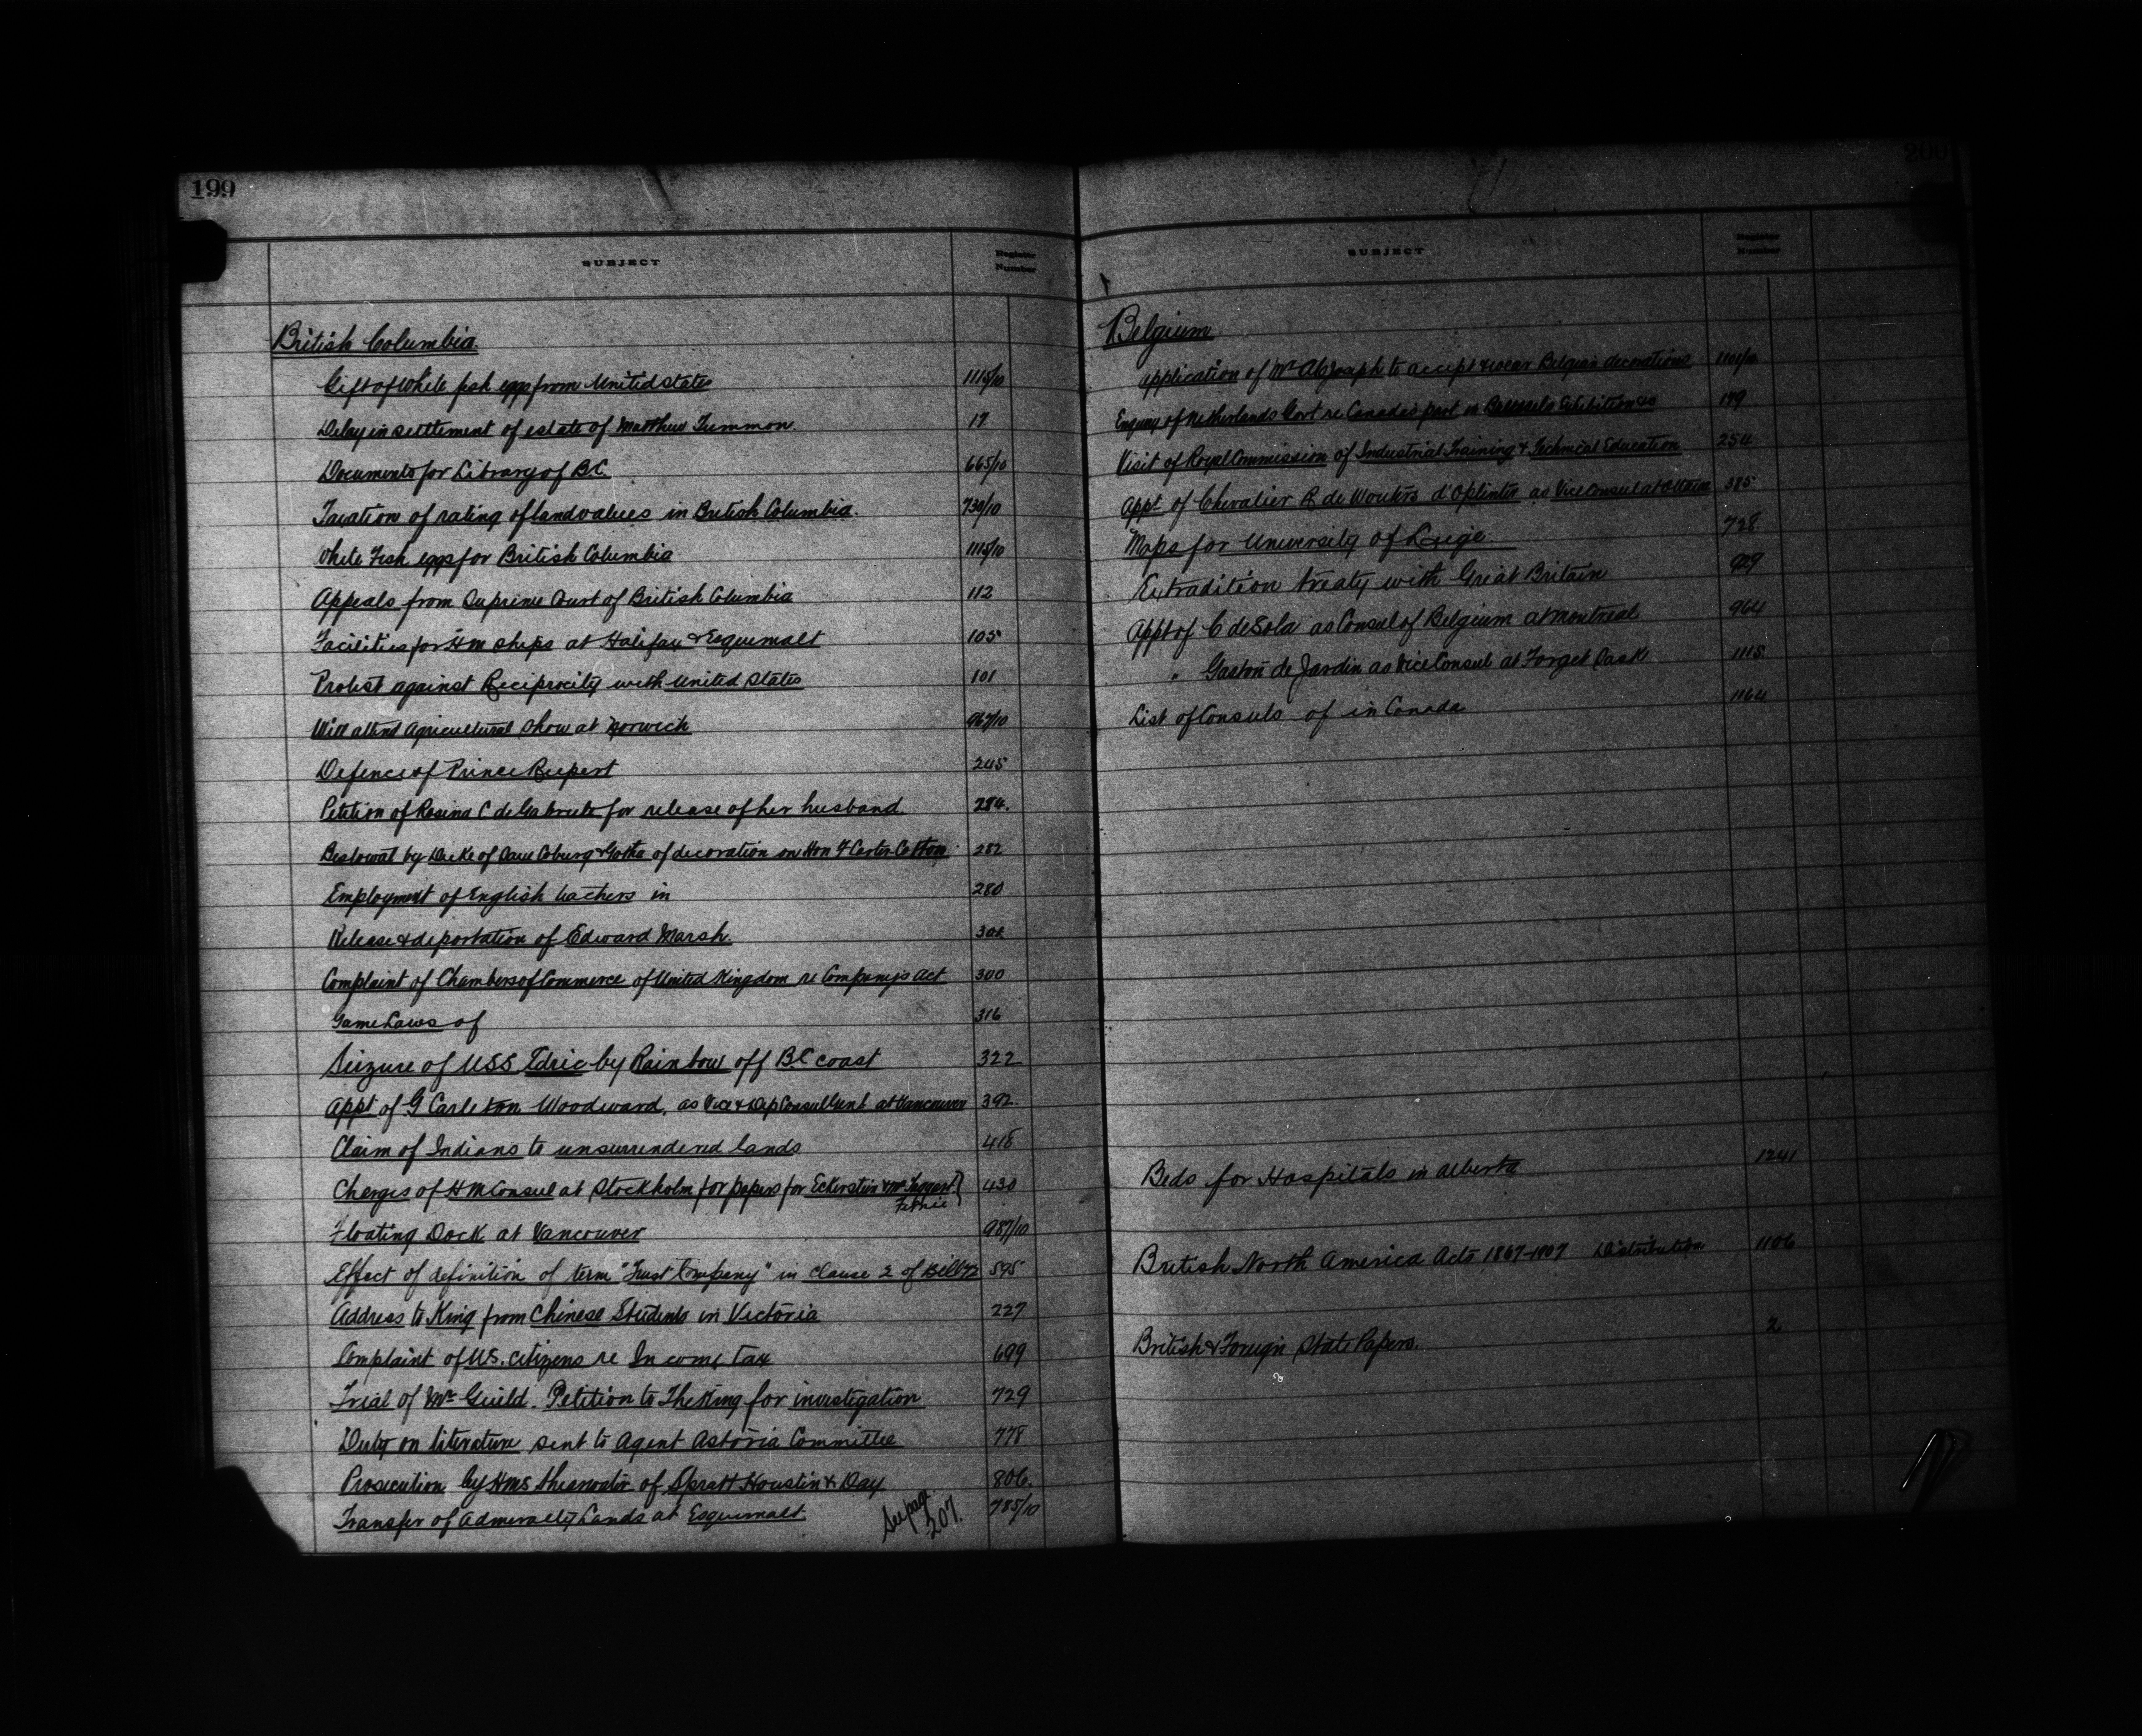 199
SUBJECT Register Number
British Columbia.
Gift of White fish eggs from United States 1115/10
Delay in settlement of estate of Matthew Tummon. 17
Documents for Library of B.C. 665/10
Taxation of rating of land values in British Columbia. 730/10
White Fish eggs for British Columbia 1115/10
Appeals from Supreme Court of British Columbia 112
Facilities for H M Ships at Halifax & Esquimalt 105
Protest against Reciprocity with United States 101
Will attend Agricultural Show at Norwich 967/10
Defence of Prince Rupert 245
Petition of Rosina C de for release of her husband. 284.
Bestowal by Duke of Saxe Coburg & Gotha of decoration on Hon F Carter-Cotton 282
Employment of English teachers in 280
Release & deportation of Edward Marsh.
Complaint of Chambers of Commerce of United Kingdom re Companys Act 300
Game Laws of 316
Seizure of USS Edric by Rainbow off B.C coast 322
Appt of G Carleton Woodward, as Vice & Dep Consul at Vancouver 392.
Claim of Indians to unsurrendered lands 418
Charges of H M Consul at Stockholm for papers for Eckerstein & McTaggart } 430
Fernie
Floating Dock at Vancouver 987/10
Effect of definition of term "Trust Company" in Clause 2 of Bill 72 595
Address to King from Chinese Students in Victoria 227
Complaint of U.S. citizens re Income tax 699
Trial of Mr Guild. Petition to The King for investigation 729
Duty on literature sent to Agent Astoria Committee 778
Prosecution by HMS Shearwater of Spratt Houstin & Day 806.
Transfer of Admiralty Lands at Esquimalt 785/10
See page 207.
200
SUBJECT Register Number
Belgium
Application of Mr Joseph to accept & wear Belgian decorations 1101/10
Enquiry of Netherlands Govt re Canada's part in Brussels Exhibition 179
Visit of Royal Commission of Industrial Training & Technical Education 254
Appt of Chevalier R de Wouters d'Oplinter as Vice Consul at Ottawa 385
Maps for University of Leige 728
Extradition treaty with Great Britain 929
Appt of C de Sola as Consul of Belgium at Montreal 964
" Gaston de Jardin as Vice Consul at Forget Sask 1115
List of Consuls of in Canada 1164
Beds for Hospitals in Alberta 1241
British North America Acts 1867-1907 Distribution 1106
British & Foreign State Papers. 2